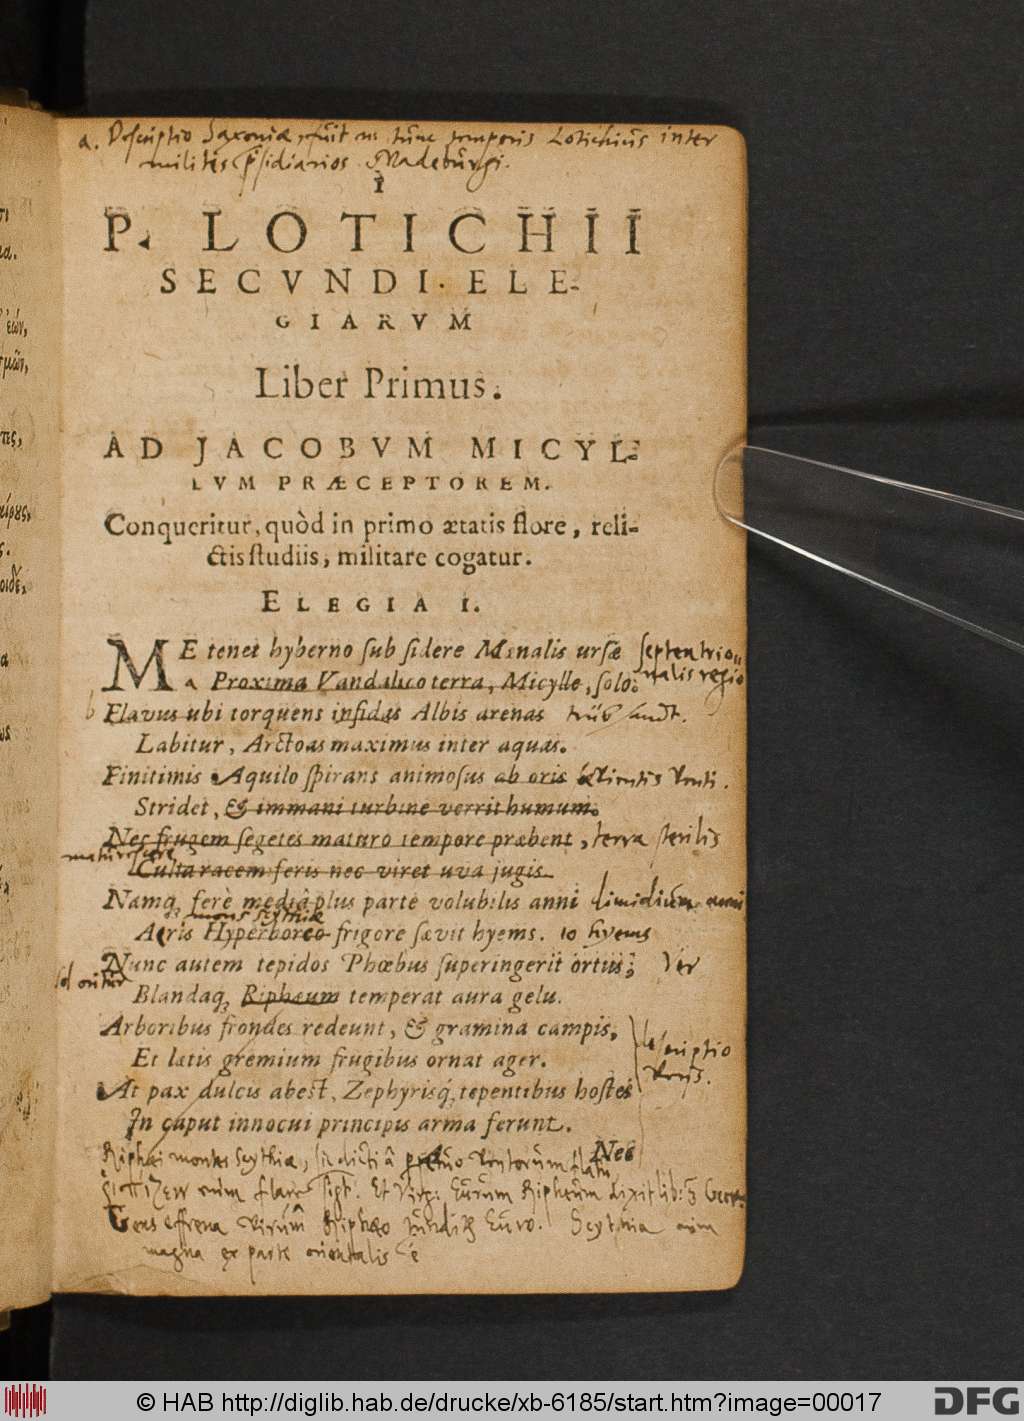 a. Descriptio Saxoniæ, fuit tunc temporis Lotichius inter
milites præsidiarios Madeburgi.
1
P. LOTICHII
SECVNDI. ELE-
GIARVM
Liber Primus.
AD JACOBVM MICYL-
LVM PRÆCEPTOREM.
Conqueritur, quòd in primo ætatis flore, reli-
ctis studiis, militare cogatur.
ELEGIA I.
ME tenet hyberno sub sidere Mænalis ursæ septentrio-
a Proxima Vandalico terra, Micylle, solo: nalis regio
b Flavus ubi torquens infidas Albis arenas
Labitur, Arctoas maximus inter aquas.
Finitimis Aquilo spirans animosus ab oris
Stridet, & immani turbine verrit humum.
Nec frugem segetes maturo tempore præbent, terra sterilis
Culta racem feris nec viret uva jugis.
Namq; ferè mediâ plus parte volubilis anni dimidium anni
mons Scythiæ
Aeris Hyperboreo frigore sævit hyems. hyems
Nunc autem tepidos Phœbus superingerit ortus; Ver
sol oritur
Blandaq; Riphæum temperat aura gelu.
Arboribus frondes redeunt, & gramina campis, descriptio
Et lætis gremium frugibus ornat ager. Veris.
At pax dulcis abest, Zephyrisq́; tepentibus hostes
In caput innocui principis arma ferunt.
Nec
Riphæi montes Scythiæ, sic dicti à ventorum flatu
ῥίπτιζειν enim flare sigt. Et Virg: Eurum Riphæum dixit lib: 3 Georg.
Gens effrena virum Riphæo tunditur Euro. Scythia enim
magna ex parte orientalis ē